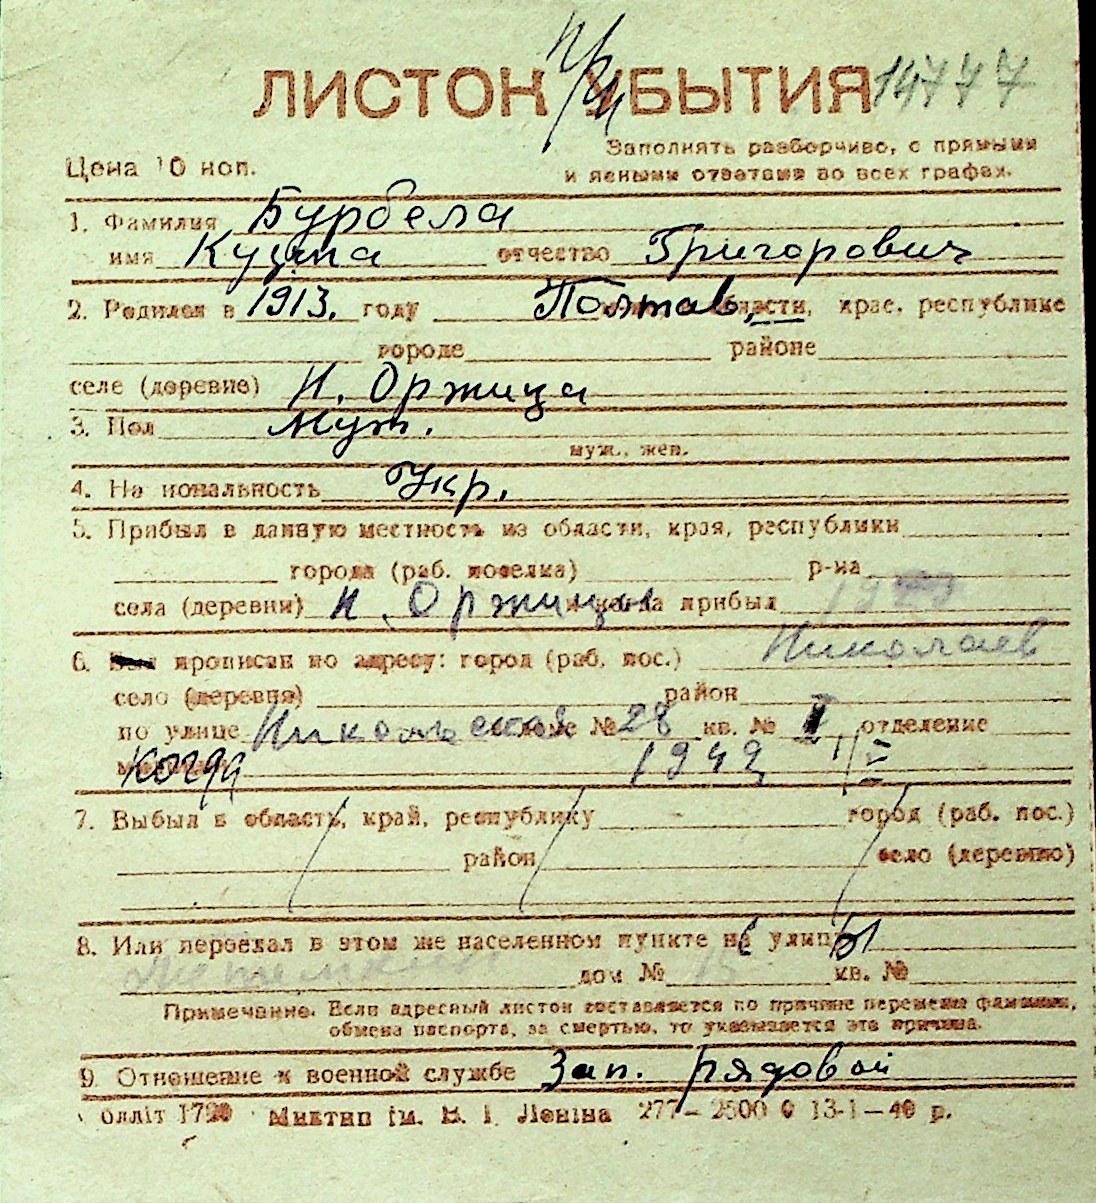 14777
ЛИСТОК УБЫТИЯ
Заполнять разборчиво, с прямыми
Цена 10 коп.
и ясными ответами во всех графах.
1. Фамилия Бурбела
имя Кузма отчество Григорович
2. Родился в 1913. году Полтав, области, крае, республике
городе районе
селе (деревне) Н. Оржица
3. Пол Муж.
муж., жен.
4. Национальность Укр.
5. Прибыл в данную местность из области, края, республики
города (раб. поселка) р-на
села (деревни) Н. Оржица и когда прибыл
6. Был прописан по адресу: город (раб. пос.) Николаев
село (деревня) район
по улице Никольская № 28 кв. № I отделение
когда 1942 11/V
7. Выбыл в область, край, республику город (раб. пос.)
район село (деревню)
8. Или переехал в этом же населенном пункте с улицы
дом № 15 кв. №
Примечание. Если адресный листок составляется по причине перемены фамилии,
обмена паспорта, за смертью, то указывается эта причина.
9. Отношение к военной службе Зап. рядовой
Миктип ім. В. І. Леніна 277—2500 13-1—40 р.